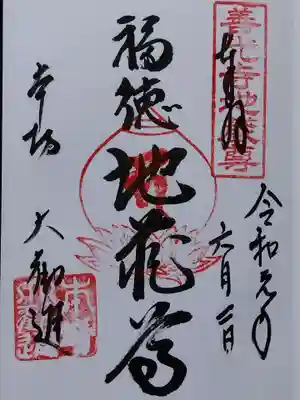 善光寺地蔵尊
奉拝
令和元年
六月 日
福徳
地蔵尊
本坊
大勧進